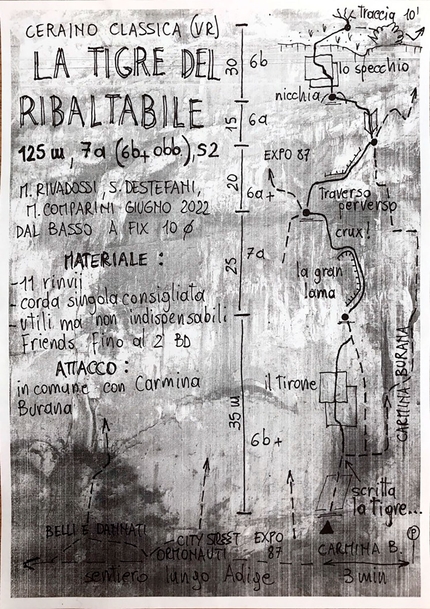 CERAINO CLASSICA (VR)
LA TIGRE DEL
RIBALTABILE
125 m, 7a (6b+ obb), S2
M. RIVADOSSI, S. DESTEFANI,
M. COMPARINI GIUGNO 2022
DAL BASSO A FIX 10 Ø
MATERIALE :
-11 rinvii
-corda singola consigliata
-utili ma non indispensabili
Friends fino al 2 BD
ATTACCO :
in comune con Carmina
Burana
Traccia 10'
30
6b
lo specchio
nicchia
15
6a
EXPO 87
20
6a+
Traverso
perverso
crux!
25
7a
la gran
lama
35 m
il Tirone
6b+
CARMINA BURANA
scritta
la Tigre...
BELLI E DANNATI
CITY STREET
ORMONAUTI
EXPO
87
CARMINA B.
P
sentiero lungo Adige
3 min